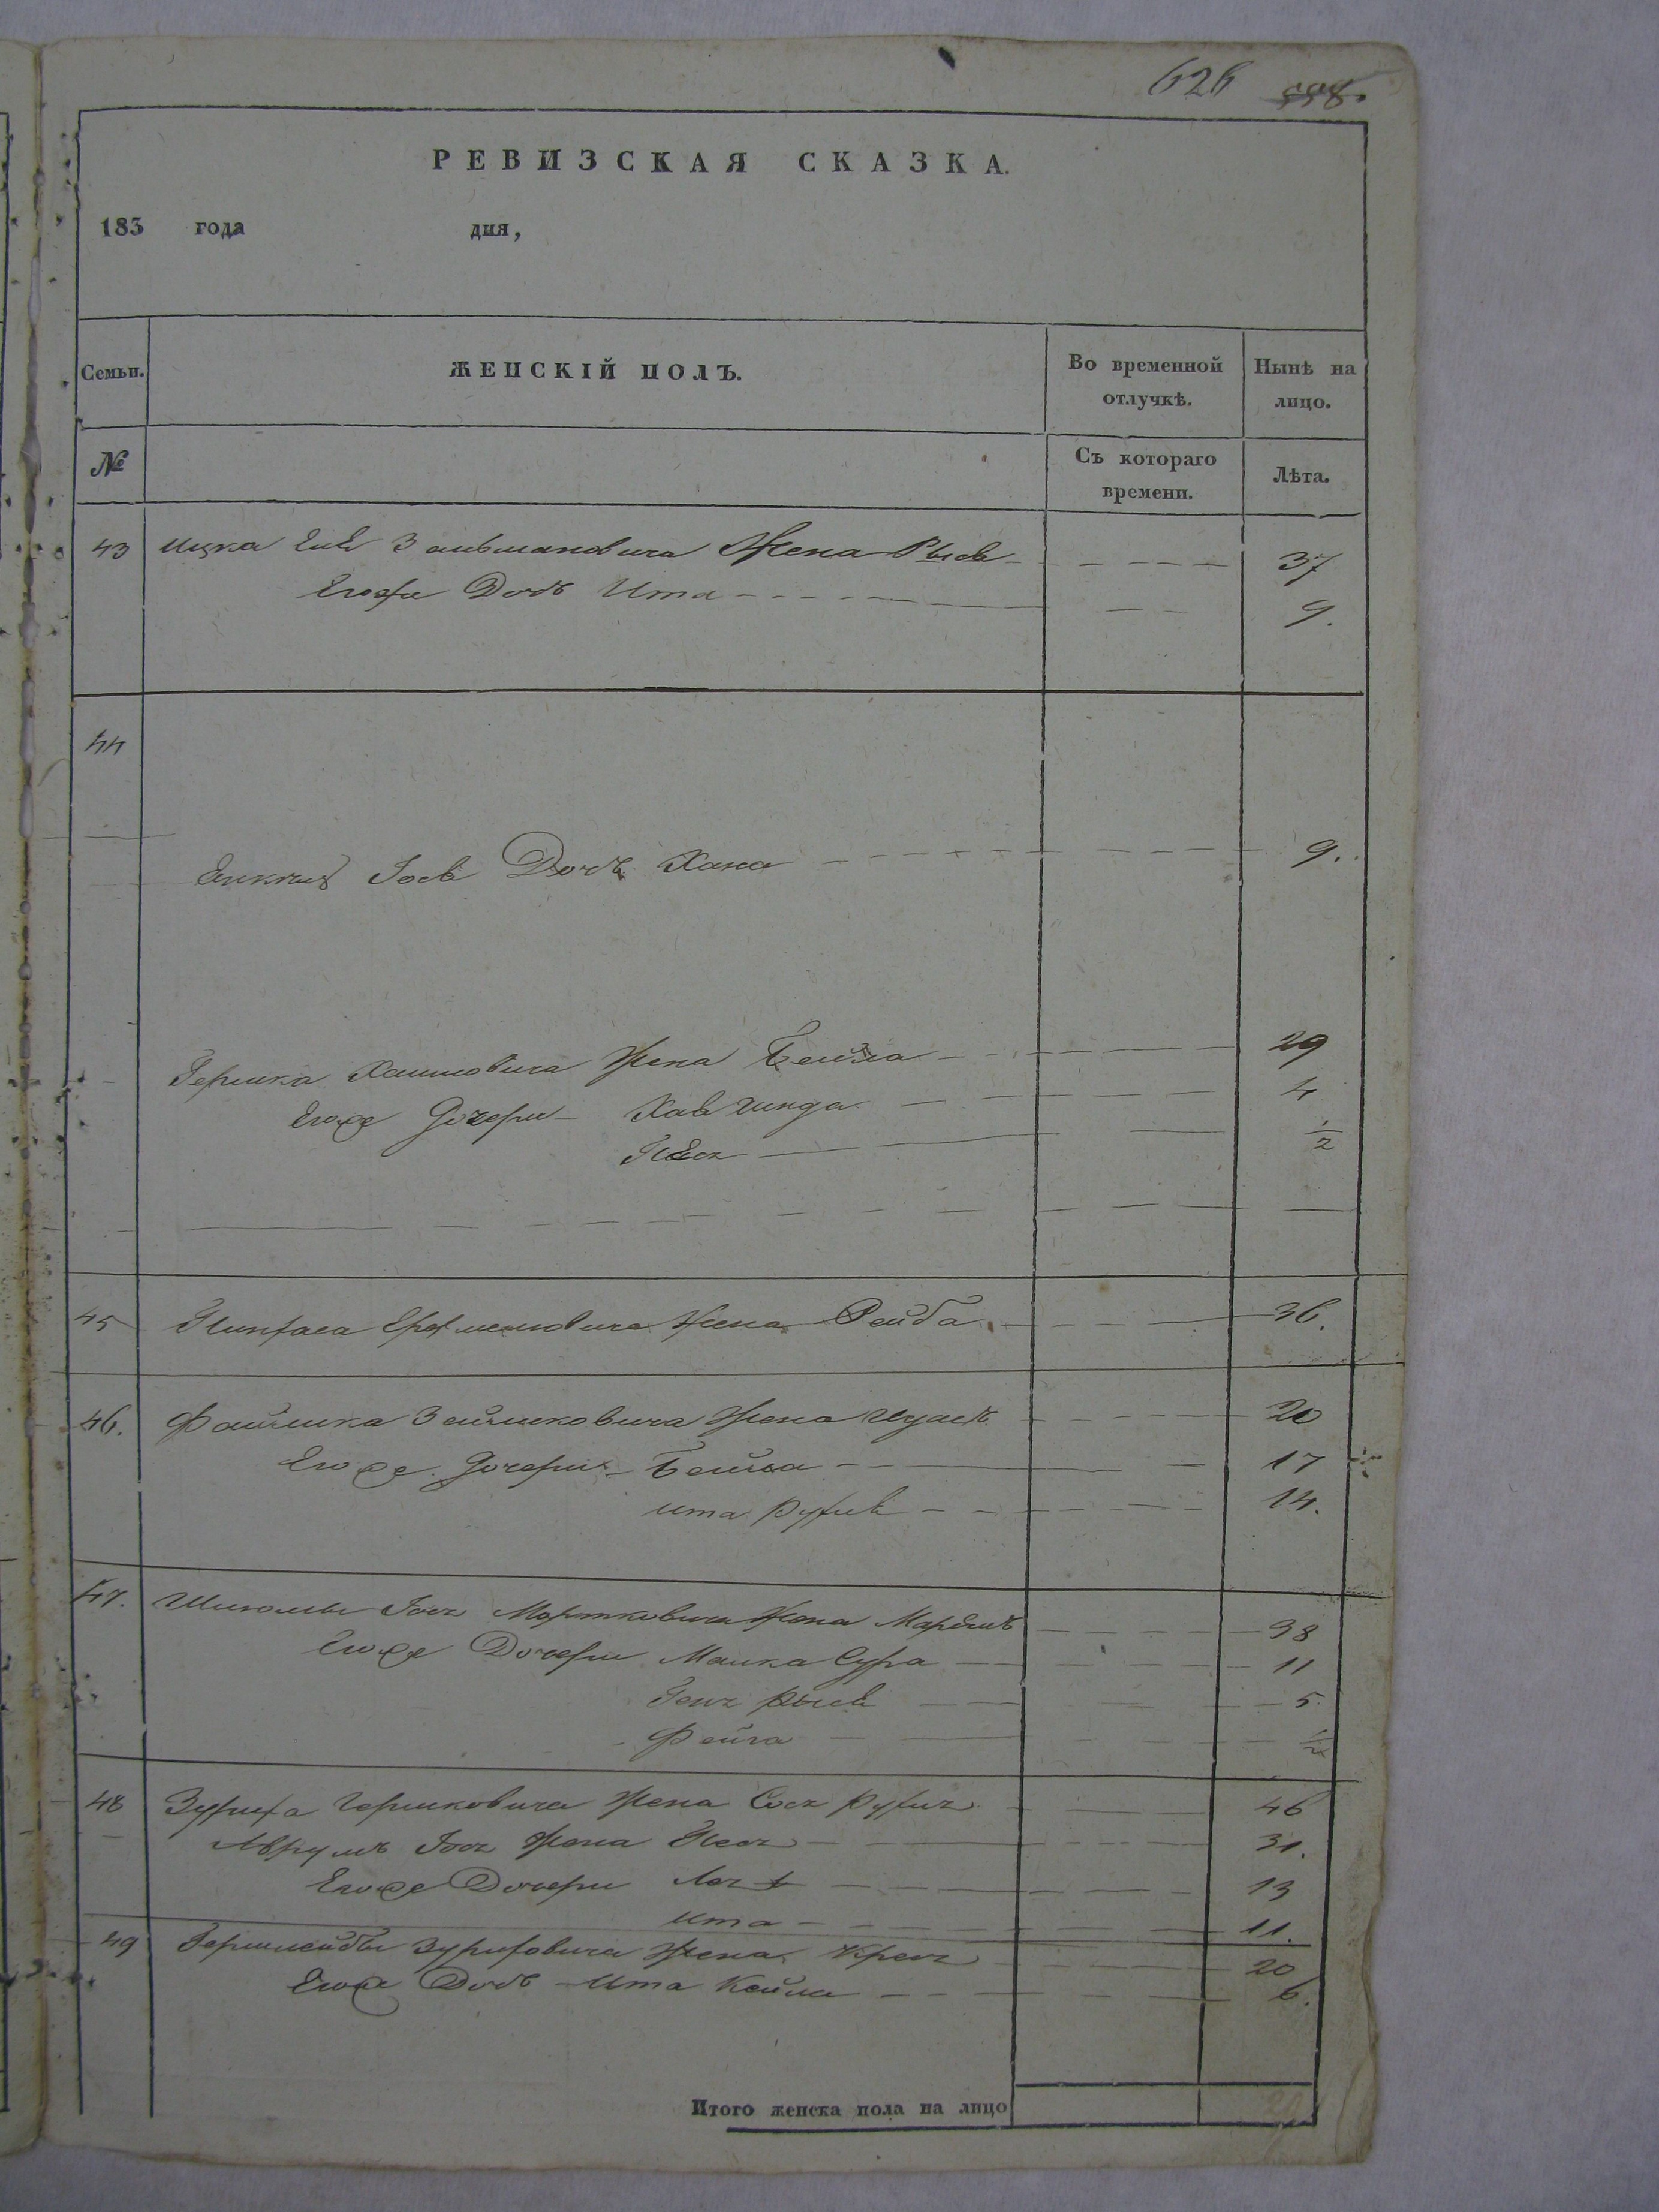 626 558.
РЕВИЗСКАЯ СКАЗКА.
183 года дня,
Семьи. ЖЕНСКІЙ ПОЛЪ. Во временной отлучкѣ. Нынѣ на лицо.
№ Съ котораго времени. Лѣта.
43 Ицка Зельмановича Жена Рыся 37
Егоже Дочь Ита 9.
44
Дочь Хана 9.
Гершка Хаимовича Жена Бейла 29
Егоже Дочери Хая Гинда 4
Песя 1/2
45 Пинхаса Жена Рейза 36.
46. Файшика Зейликовича Жена 20
Егоже Дочери Бейла 17
Ита Рухля 14.
47. Иось Мортковича Жена 38
Егоже Дочери Малка Сура 11
Геня Рыся 5
Фейга 1/2
48 Зуриха Гершковича Жена Сося Рухля 46
Аврумъ Иося Жена Песя 31.
Егоже Дочери Лея 13
Ита 11.
49 Гершлейбы Зуриховича Жена Крейня 20
Егоже Дочь Ита Кейла 6.
Итого женска пола на лицо